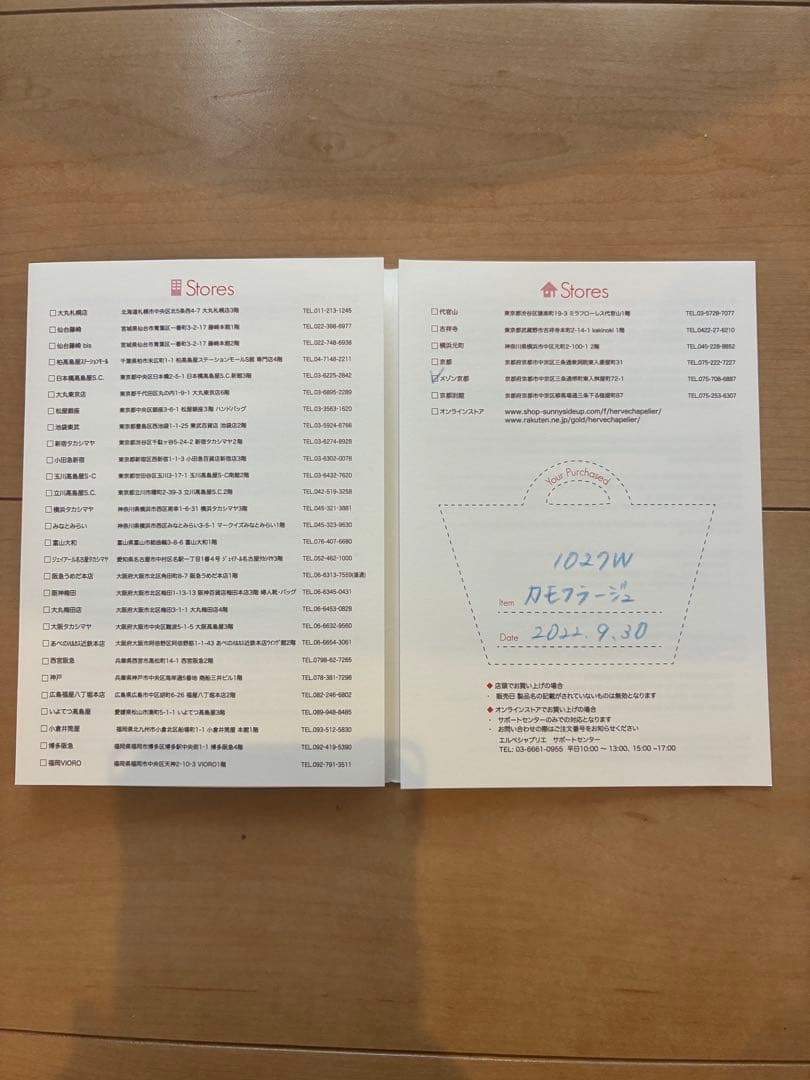 Stores
□大丸札幌店 北海道札幌市中央区北5条西4-7 大丸札幌店3階 TEL.011-213-1245
□仙台藤崎 宮城県仙台市青葉区一番町3-2-17 藤崎本館1階 TEL.022-398-6977
□仙台藤崎 bis 宮城県仙台市青葉区一番町3-2-17 藤崎本館2階 TEL.022-748-6938
□柏高島屋ステーションモール 千葉県柏市末広町1-1 柏高島屋ステーションモールS館 専門店4階 TEL.04-7148-2211
□日本橋高島屋S.C. 東京都中央区日本橋2-5-1 日本橋高島屋S.C.新館3階 TEL.03-6225-2842
□大丸東京店 東京都千代田区丸の内1-9-1 大丸東京店6階 TEL.03-6895-2289
□松屋銀座 東京都中央区銀座3-6-1 松屋銀座3階 ハンドバッグ TEL.03-3563-1620
□池袋東武 東京都豊島区西池袋1-1-25 東武百貨店 池袋店2階 TEL.03-5924-8766
□新宿タカシマヤ 東京都渋谷区千駄ヶ谷5-24-2 新宿タカシマヤ2階 TEL.03-6274-8928
□小田急新宿 東京都新宿区西新宿1-1-3 小田急百貨店新宿店3階 TEL.03-6302-0078
□玉川高島屋S・C 東京都世田谷区玉川3-17-1 玉川高島屋S・C南館2階 TEL.03-6432-7620
□立川高島屋S.C. 東京都立川市曙町2-39-3 立川高島屋S.C.2階 TEL.042-519-3258
□横浜タカシマヤ 神奈川県横浜市西区南幸1-6-31 横浜タカシマヤ3階 TEL.045-321-3881
□みなとみらい 神奈川県横浜市西区みなとみらい3-5-1 マークイズみなとみらい1階 TEL.045-323-9630
□富山大和 富山県富山市総曲輪3-8-6 富山大和1階 TEL.076-407-6680
□ジェイアール名古屋タカシマヤ 愛知県名古屋市中村区名駅一丁目1番4号 ジェイアール名古屋タカシマヤ3階 TEL.052-462-1000
□阪急うめだ本店 大阪府大阪市北区角田町8-7 阪急うめだ本店1階 TEL.06-6313-7559(直通)
□阪神梅田 大阪府大阪市北区梅田1-13-13 阪神百貨店梅田本店3階 婦人靴・バッグ TEL.06-6345-0431
□大丸梅田店 大阪府大阪市北区梅田3-1-1 大丸梅田店4階 TEL.06-6453-0828
□大阪タカシマヤ 大阪府大阪市中央区難波5-1-5 大阪高島屋3階 TEL.06-6632-9560
□あべのハルカス近鉄本店 大阪府大阪市阿倍野区阿倍野筋1-1-43 あべのハルカス近鉄本店ウイング館2階 TEL.06-6654-3061
□西宮阪急 兵庫県西宮市高松町14-1 西宮阪急2階 TEL.0798-62-7265
□神戸 兵庫県神戸市中央区海岸通5番地 商船三井ビル1階 TEL.078-381-7298
□広島福屋八丁堀本店 広島県広島市中区胡町6-26 福屋八丁堀本店2階 TEL.082-246-6802
□いよてつ高島屋 愛媛県松山市湊町5-1-1 いよてつ高島屋3階 TEL.089-948-8485
□小倉井筒屋 福岡県北九州市小倉北区船場町1-1 小倉井筒屋 本館1階 TEL.093-512-5830
□博多阪急 福岡県福岡市博多区博多駅中央街1-1 博多阪急4階 TEL.092-419-5390
□福岡VIORO 福岡県福岡市中央区天神2-10-3 VIORO1階 TEL.092-791-3511
Stores
□代官山 東京都渋谷区猿楽町19-3 ミラフローレス代官山1階 TEL.03-5728-7077
□吉祥寺 東京都武蔵野市吉祥寺本町2-14-1 kakinoki 1階 TEL.0422-27-6210
□横浜元町 神奈川県横浜市中区元町2-100-1 2階 TEL.045-228-8652
□京都 京都府京都市中京区三条通東洞院東入菱屋町31 TEL.075-222-7227
☑メゾン京都 京都府京都市中京区三条通堺町東入桝屋町72-1 TEL.075-708-6887
□京都別館 京都府京都市中京区柳馬場通三条下る槌屋町87 TEL.075-253-6307
□オンラインストア www.shop-sunnysideup.com/f/hervechapelier/
www.rakuten.ne.jp/gold/hervechapelier/
Your Purchased
1027W
Item カモフラージュ
Date 2022.9.30
◆店頭でお買い上げの場合
・ 販売日 製品名の記載がされていないものは無効となります
◆オンラインストアでお買い上げの場合
・ サポートセンターのみでの対応となります
・ お問い合わせの際はご注文番号をお知らせください
エルベシャプリエ サポートセンター
TEL: 03-6661-0955 平日10:00 ～ 13:00、15:00 ~17:00